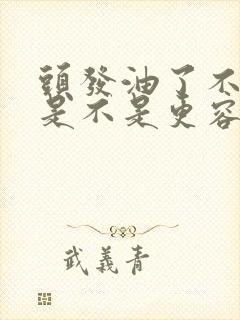 頭發油了不
是不是更容
武義青